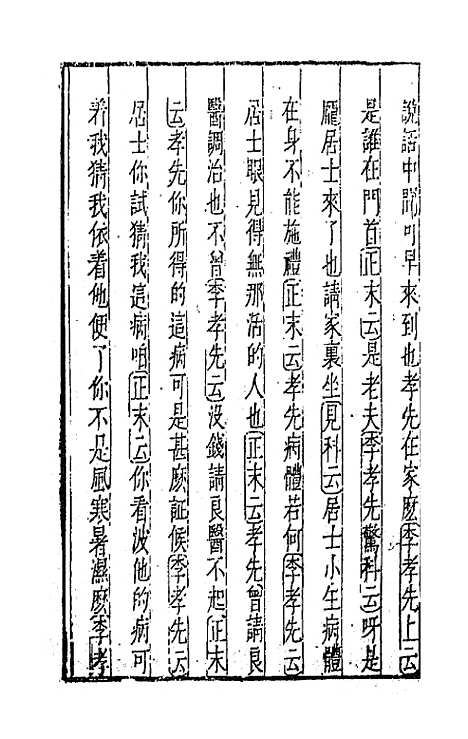 說話中間可早來到也孝先在家麽李孝先上云
是誰在門首正末云是老夫李孝先驚科云呀是
龐居士來了也請家裏坐見科云居士小生病體
在身不能施禮正末云孝先病體若何李孝先云
居士眼見得無那活的人也正末云孝先曾請良
醫調治也不曾李孝先云没錢請良醫不起正末
云孝先你所得的這病可是甚麽証候李孝先云
居士你試猜我這病咱正末云你看波他的病可
着我猜我依着他便了你不是風寒暑濕麽李孝